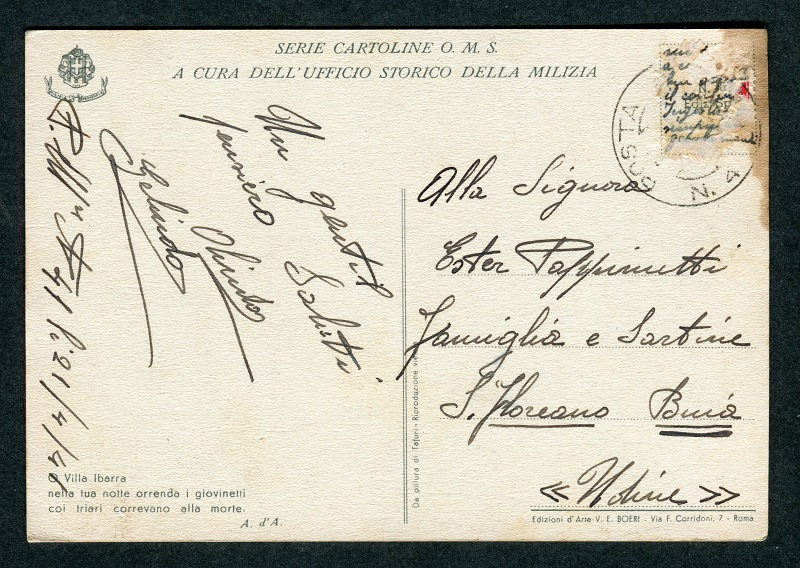 SERIE CARTOLINE O. M. S.
A CURA DELL'UFFICIO STORICO DELLA MILIZIA
POSTA
N. 4
Un gentil
pensiero Saluti
Olinda
Galindo
21/4/41
Alla Signora
Ester Pappinutti
Famiglia e Sartine
S. Floreano Buia
« Udine »
O Villa Ibarra
nella tua notte orrenda i giovinetti
coi triari correvano alla morte.
A. d'A.
Da pittura di Tafuri - Riproduzione
Edizioni d'Arte V. E. BOERI - Via F. Corridoni, 7 - Roma